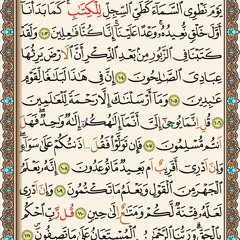 يَوْمَ نَطْوِي السَّمَاءَ كَطَيِّ السِّجِلِّ لِلْكِتَابِ كَمَا بَدَأْنَا
أَوَّلَ خَلْقٍ نُعِيدُهُ وَعْدًا عَلَيْنَا إِنَّا كُنَّا فَاعِلِينَ ١٠٤ وَلَقَدْ
كَتَبْنَا فِي الزَّبُورِ مِنْ بَعْدِ الذِّكْرِ أَنَّ الْأَرْضَ يَرِثُهَا
عِبَادِيَ الصَّالِحُونَ ١٠٥ إِنَّ فِي هَذَا لَبَلَاغًا لِقَوْمٍ
عَابِدِينَ ١٠٦ وَمَا أَرْسَلْنَاكَ إِلَّا رَحْمَةً لِلْعَالَمِينَ
١٠٧ قُلْ إِنَّمَا يُوحَى إِلَيَّ أَنَّمَا إِلَهُكُمْ إِلَهٌ وَاحِدٌ فَهَلْ
أَنْتُمْ مُسْلِمُونَ ١٠٨ فَإِنْ تَوَلَّوْا فَقُلْ آذَنْتُكُمْ عَلَى سَوَاءٍ
وَإِنْ أَدْرِي أَقَرِيبٌ أَمْ بَعِيدٌ مَا تُوعَدُونَ ١٠٩ إِنَّهُ يَعْلَمُ
الْجَهْرَ مِنَ الْقَوْلِ وَيَعْلَمُ مَا تَكْتُمُونَ ١١٠ وَإِنْ أَدْرِي
لَعَلَّهُ فِتْنَةٌ لَكُمْ وَمَتَاعٌ إِلَى حِينٍ ١١١ قَالَ رَبِّ احْكُمْ
بِالْحَقِّ وَرَبُّنَا الرَّحْمَنُ الْمُسْتَعَانُ عَلَى مَا تَصِفُونَ ١١٢